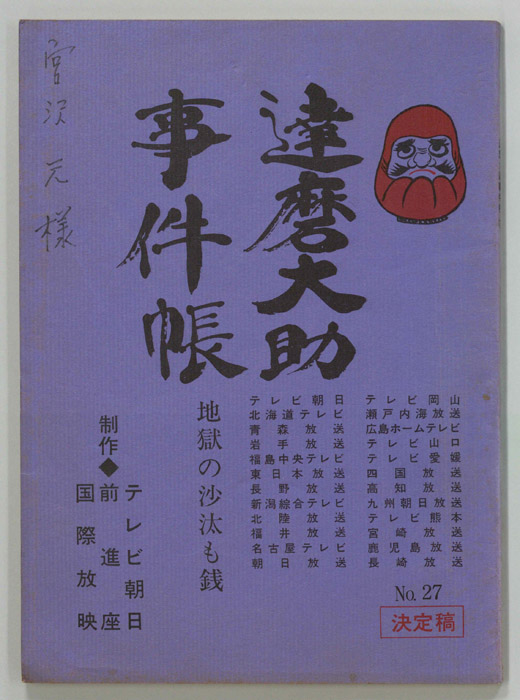 達磨大助
事件帳
宮沢元様
地獄の沙汰も銭
制作◆
テレビ朝日
前進座
国際放映
テレビ朝日
北海道テレビ
青森放送
岩手放送
福島中央テレビ
東日本放送
長野放送
新潟綜合テレビ
北陸放送
福井放送
名古屋テレビ
朝日放送
テレビ岡山
瀬戸内海放送
広島ホームテレビ
テレビ山口
テレビ愛媛
四国放送
高知放送
九州朝日放送
テレビ熊本
宮崎放送
鹿児島放送
長崎放送
No. 27
決定稿